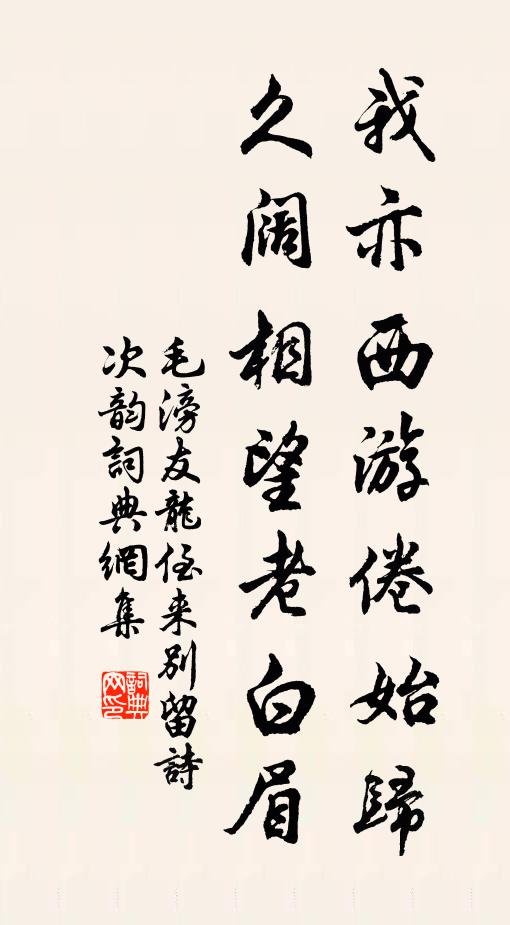 我亦西游倦始歸
久阔相望老白眉
毛滂友龍侄来别留詩
次韵詞典網集
詞典网印